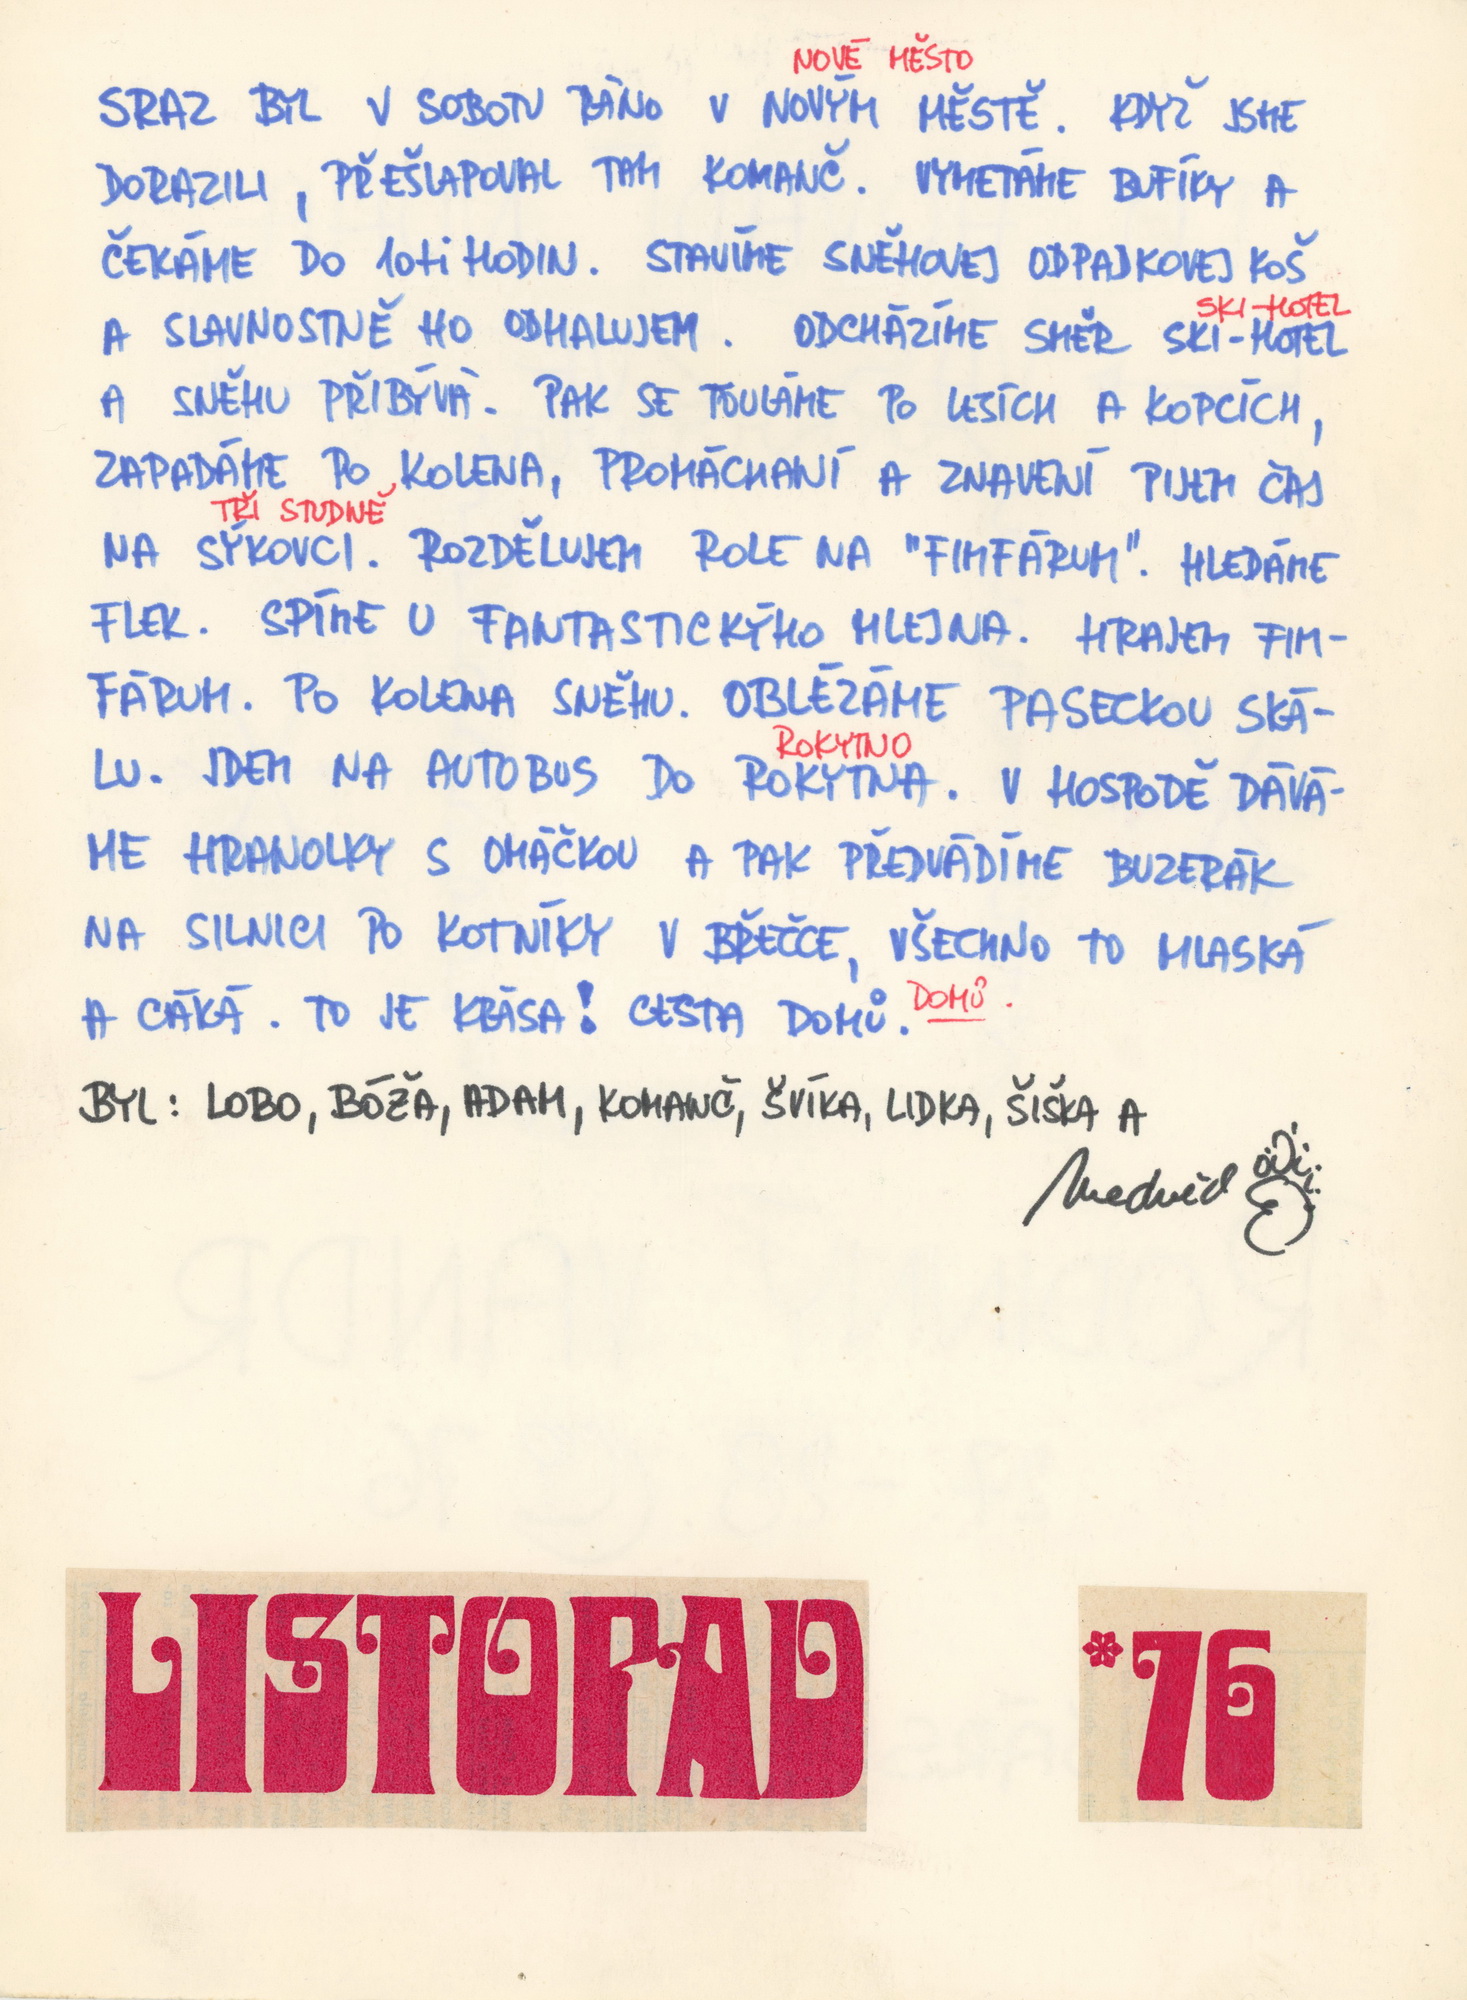 NOVÉ MĚSTO
SRAZ BYL V SOBOTU RÁNO V NOVÝM MĚSTĚ. KDYŽ JSME
DORAZILI, PŘEŠLAPOVAL TAM KOMANČ. VYMETÁME BUFÍKY A
ČEKÁME DO 10ti HODIN. STAVÍME SNĚHOVEJ ODPAJKOVEJ KOŠ
SKI-HOTEL
A SLAVNOSTNĚ HO ODHALUJEM. ODCHÁZÍME SMĚR SKI-HOTEL
A SNĚHU PŘIBÝVÁ. PAK SE TOULÁME PO LESÍCH A KOPCÍCH,
ZAPADÁME PO KOLENA, PROMÁCHANÍ A ZNAVENÍ PIJEM ČAJ
TŘI STUDNĚ
NA SÝKOVCI. ROZDĚLUJEM ROLE NA "FIMFÁRUM". HLEDÁME
FLEK. SPÍME U FANTASTICKÝHO MLEJNA. HRAJEM FIM-
FÁRUM. PO KOLENA SNĚHU. OBLÉZÁME PASECKOU SKÁ-
ROKYTNO
LU. JDEM NA AUTOBUS DO ROKYTNA. V HOSPODĚ DÁVÁ-
ME HRANOLKY S OMÁČKOU A PAK PŘEDVÁDÍME BUZERÁK
NA SILNICI PO KOTNÍKY V BŘEČCE, VŠECHNO TO MLASKÁ
A CÁKÁ. TO JE KRÁSA! CESTA DOMŮ. DOMŮ.
BYL: LOBO, BÓŽA, ADAM, KOMANČ, ŠVÍKA, LIDKA, ŠIŠKA A
Medvěd
LISTOPAD *76